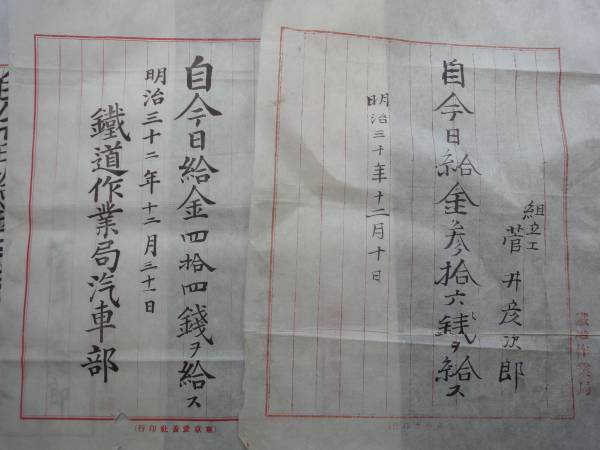 組立工
菅井彦次郎
自今日給金参拾六銭ヲ給ス
明治三十年十二月十日
鐵道作業局
自今日給金四拾四錢ヲ給ス
明治三十二年十二月三十一日
鐵道作業局汽車部
(東京愛善社印行)